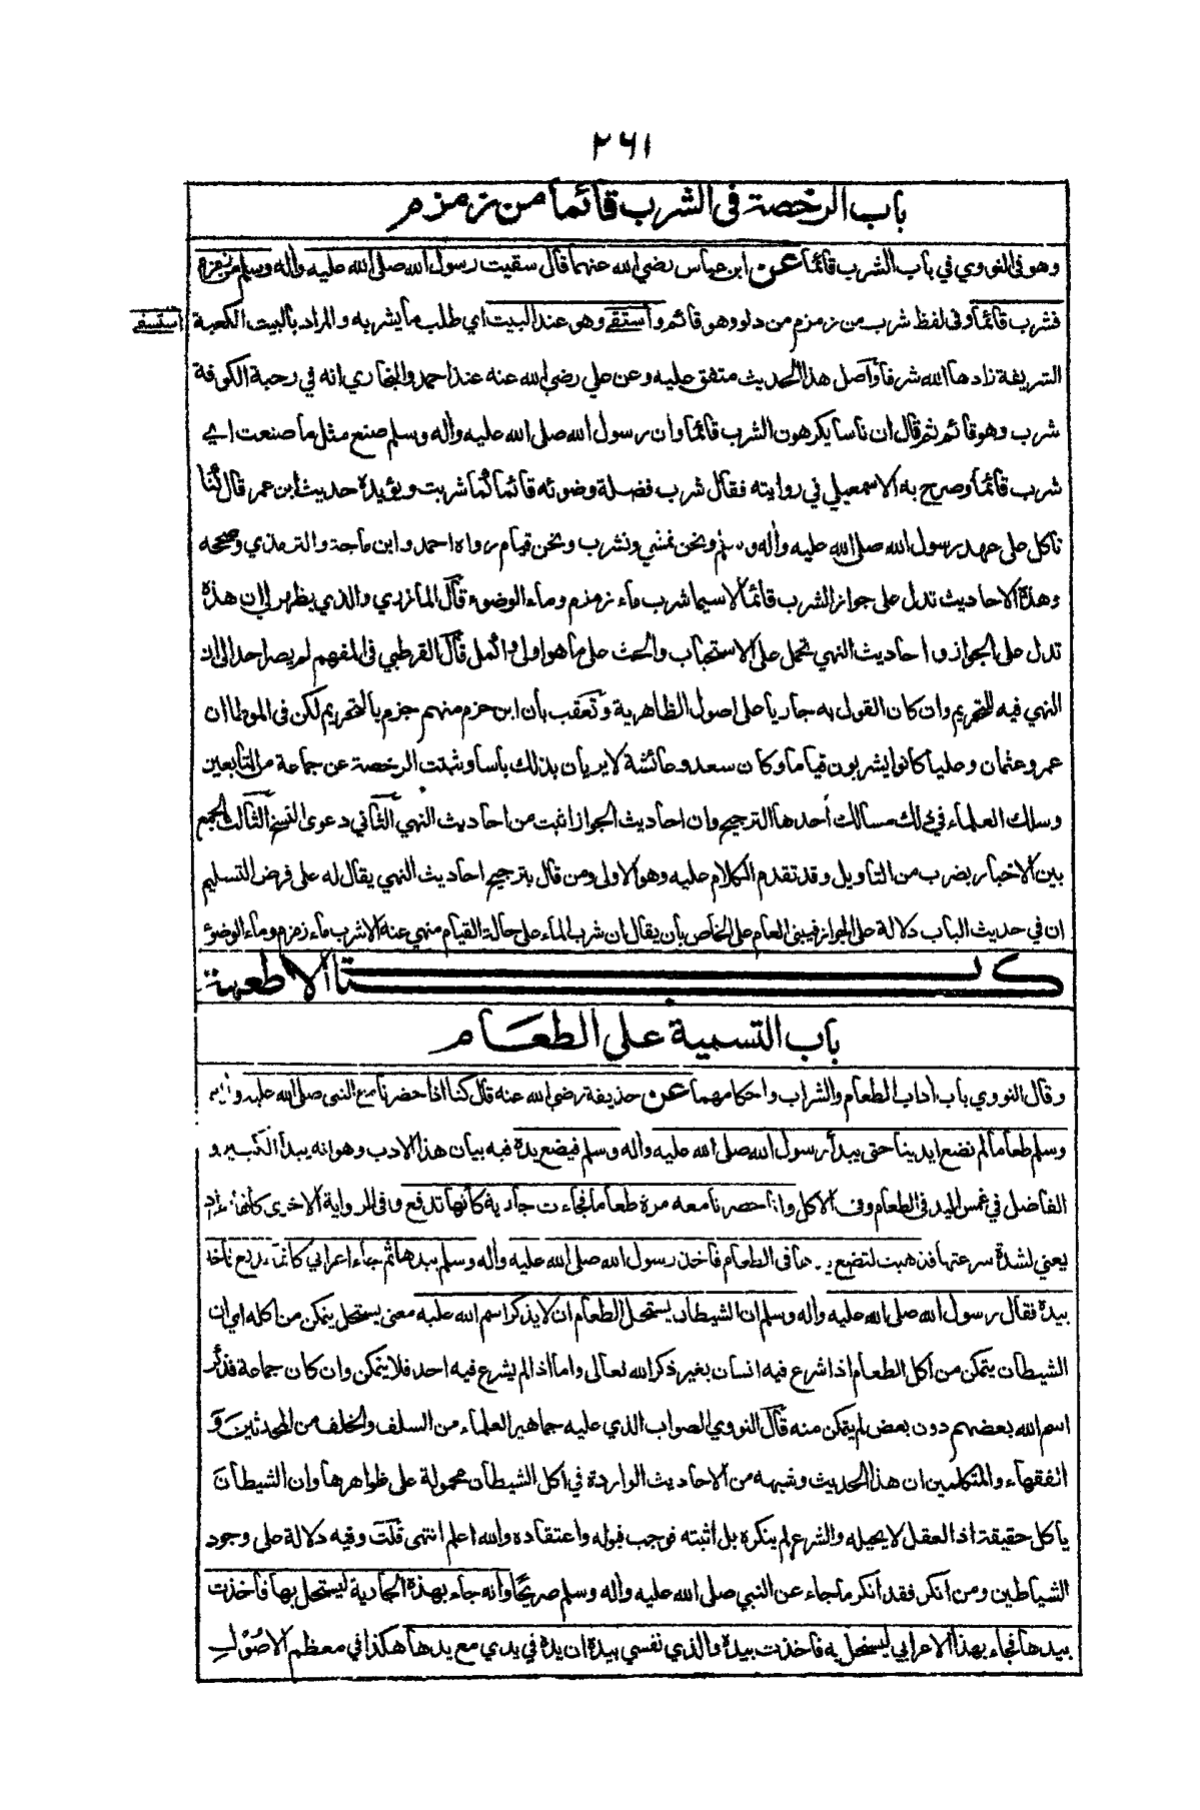 ٢٦١
باب الرخصة فى الشرب قائما من زمزم
وهو فى النووي في باب الشرب قائما عن ابن عباس رضي الله عنهما قال سقيت رسول الله صلى الله عليه واله وسلم من زمزم
فشرب قائما وفى لفظ شرب من زمزم من دلو وهو قائم واستقے وهو عند البيت اي طلب ما يشربه والمراد بالبيت الكعبة
استسقے
الشريفة زادها الله شرفا واصل هذا الحديث متفق عليه وعن علي رضي الله عنه عند احمد والبخاري انه في رحبة الكوفة
شرب وهو قائم ثم قال ان ناسا يكرهون الشرب قائما وان رسول الله صلى الله عليه واله وسلم صنع مثل ما صنعت اي
شرب قائما وصرح به الاسمعيلي في روايته فقال شرب فضلة وضوئه قائما كما شربت ويؤيده حديث ابن عمر قال كنا
ناكل على عهد رسول الله صلى الله عليه واله وسلم ونحن نمشي ونشرب ونحن قيام رواه احمد وابن ماجة والترمذي وصححه
وهذه الاحاديث تدل على جواز الشرب قائما لاسيما شرب ماء زمزم وماء الوضوء قال المازري والذي يظهر لي ان هذه
تدل على الجواز واحاديث النهي تحمل على الاستحباب والحث على ما هو اولى واكمل قال القرطبي فى المفهم لم يصر احد الى ان
النهي فيه للتحريم وان كان القول به جاريا على اصول الظاهرية وتعقب بان ابن حزم منهم جزم بالتحريم لكن فى الموطا ان
عمر وعثمان وعليا كانوا يشربون قياما وكان سعد وعائشة لا يريان بذلك باسا وثبتت الرخصة عن جماعة من التابعين
وسلك العلماء في ذلك مسالك أحدها الترجيح وان احاديث الجواز اثبت من احاديث النهي الثاني دعوى النسخ الثالث الجمع
بين الاخبار بضرب من التاويل وقد تقدم الكلام عليه وهو الاولى ومن قال بترجيح احاديث النهي يقال له على فرض التسليم
ان في حديث الباب دلالة على الجواز فيبنى العام على الخاص بان يقال ان شرب الماء على حالة القيام منهي عنه الا شرب ماء زمزم وماء الوضوء
كتاب الاطعمة
باب التسمية على الطعام
وقال النووي باب اداب الطعام والشراب واحكامهما عن حذيفة رضي الله عنه قال كنا اذا حضرنا مع النبي صلى الله عليه واله
وسلم طعاما لم نضع ايدينا حتى يبدأ رسول الله صلى الله عليه واله وسلم فيضع يده فيه بيان هذا الادب وهو انه يبدأ الكبير و
الفاضل في غمس اليد فى الطعام وفى الاكل وانا حضرنا معه مرة طعاما فجاءت جارية كأنها تدفع وفى الرواية الاخرى كأنها تطرد
يعني لشدة سرعتها فذهبت لتضع يدها فى الطعام فاخذ رسول الله صلى الله عليه واله وسلم بيدها ثم جاء اعرابي كانما يدفع فاخذ
بيده فقال رسول الله صلى الله عليه واله وسلم ان الشيطان يستحل الطعام ان لا يذكر اسم الله عليه معنى يستحل يتمكن من اكله اي ان
الشيطان يتمكن من اكل الطعام اذا شرع فيه انسان بغير ذكر الله تعالى واما اذا لم يشرع فيه احد فلا يتمكن وان كان جماعة فذكر
اسم الله بعضهم دون بعض لم يتمكن منه قال النووي الصواب الذي عليه جماهير العلماء من السلف والخلف من المحدثين و
الفقهاء والمتكلمين ان هذا الحديث وشبهه من الاحاديث الواردة في اكل الشيطان محمولة على ظواهرها وان الشيطان
يأكل حقيقة اذ العقل لا يحيله والشرع لم ينكره بل أثبته فوجب قبوله واعتقاده والله اعلم انتهى قلت وفيه دلالة على وجود
الشياطين ومن انكر فقد انكر ما جاء عن النبي صلى الله عليه واله وسلم صريحا وانه جاء بهذه الجارية ليستحل بها فاخذت
بيدها فجاء بهذا الاعرابي ليستحل به فاخذت بيده والذي نفسي بيده ان يده في يدي مع يدها هكذا في معظم الاصول